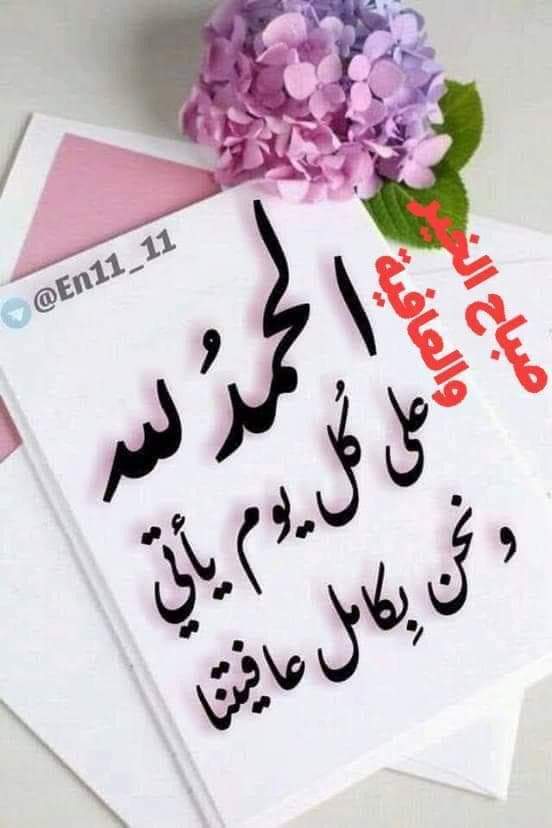 @En11_11
صباح الخير
والعافية
الحمدُ لله
على كُل يوم يأتي
و نحن بِكامل عافيتنا